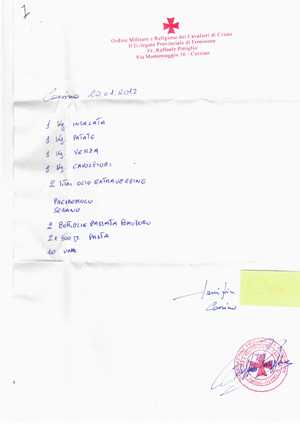 1
Ordine Militare e Religioso dei Cavalieri di Cristo
Il Delegato Provinciale di Frosinone
Fr. Raffaele Panaglia
Via Montemaggio 16 - Cassino
Cassino 20.01.2012
1 Kg INSALATA
1 Kg PATATE
1 Kg VERZA
1 Kg CAVOLFIORI
2 litri OLIO EXTRAVERGINE
PREZZEMOLO
SEDANO
2 BOTTIGLIE PASSATA POMODORO
2x500 gr PASTA
10 UOVA
Cassino